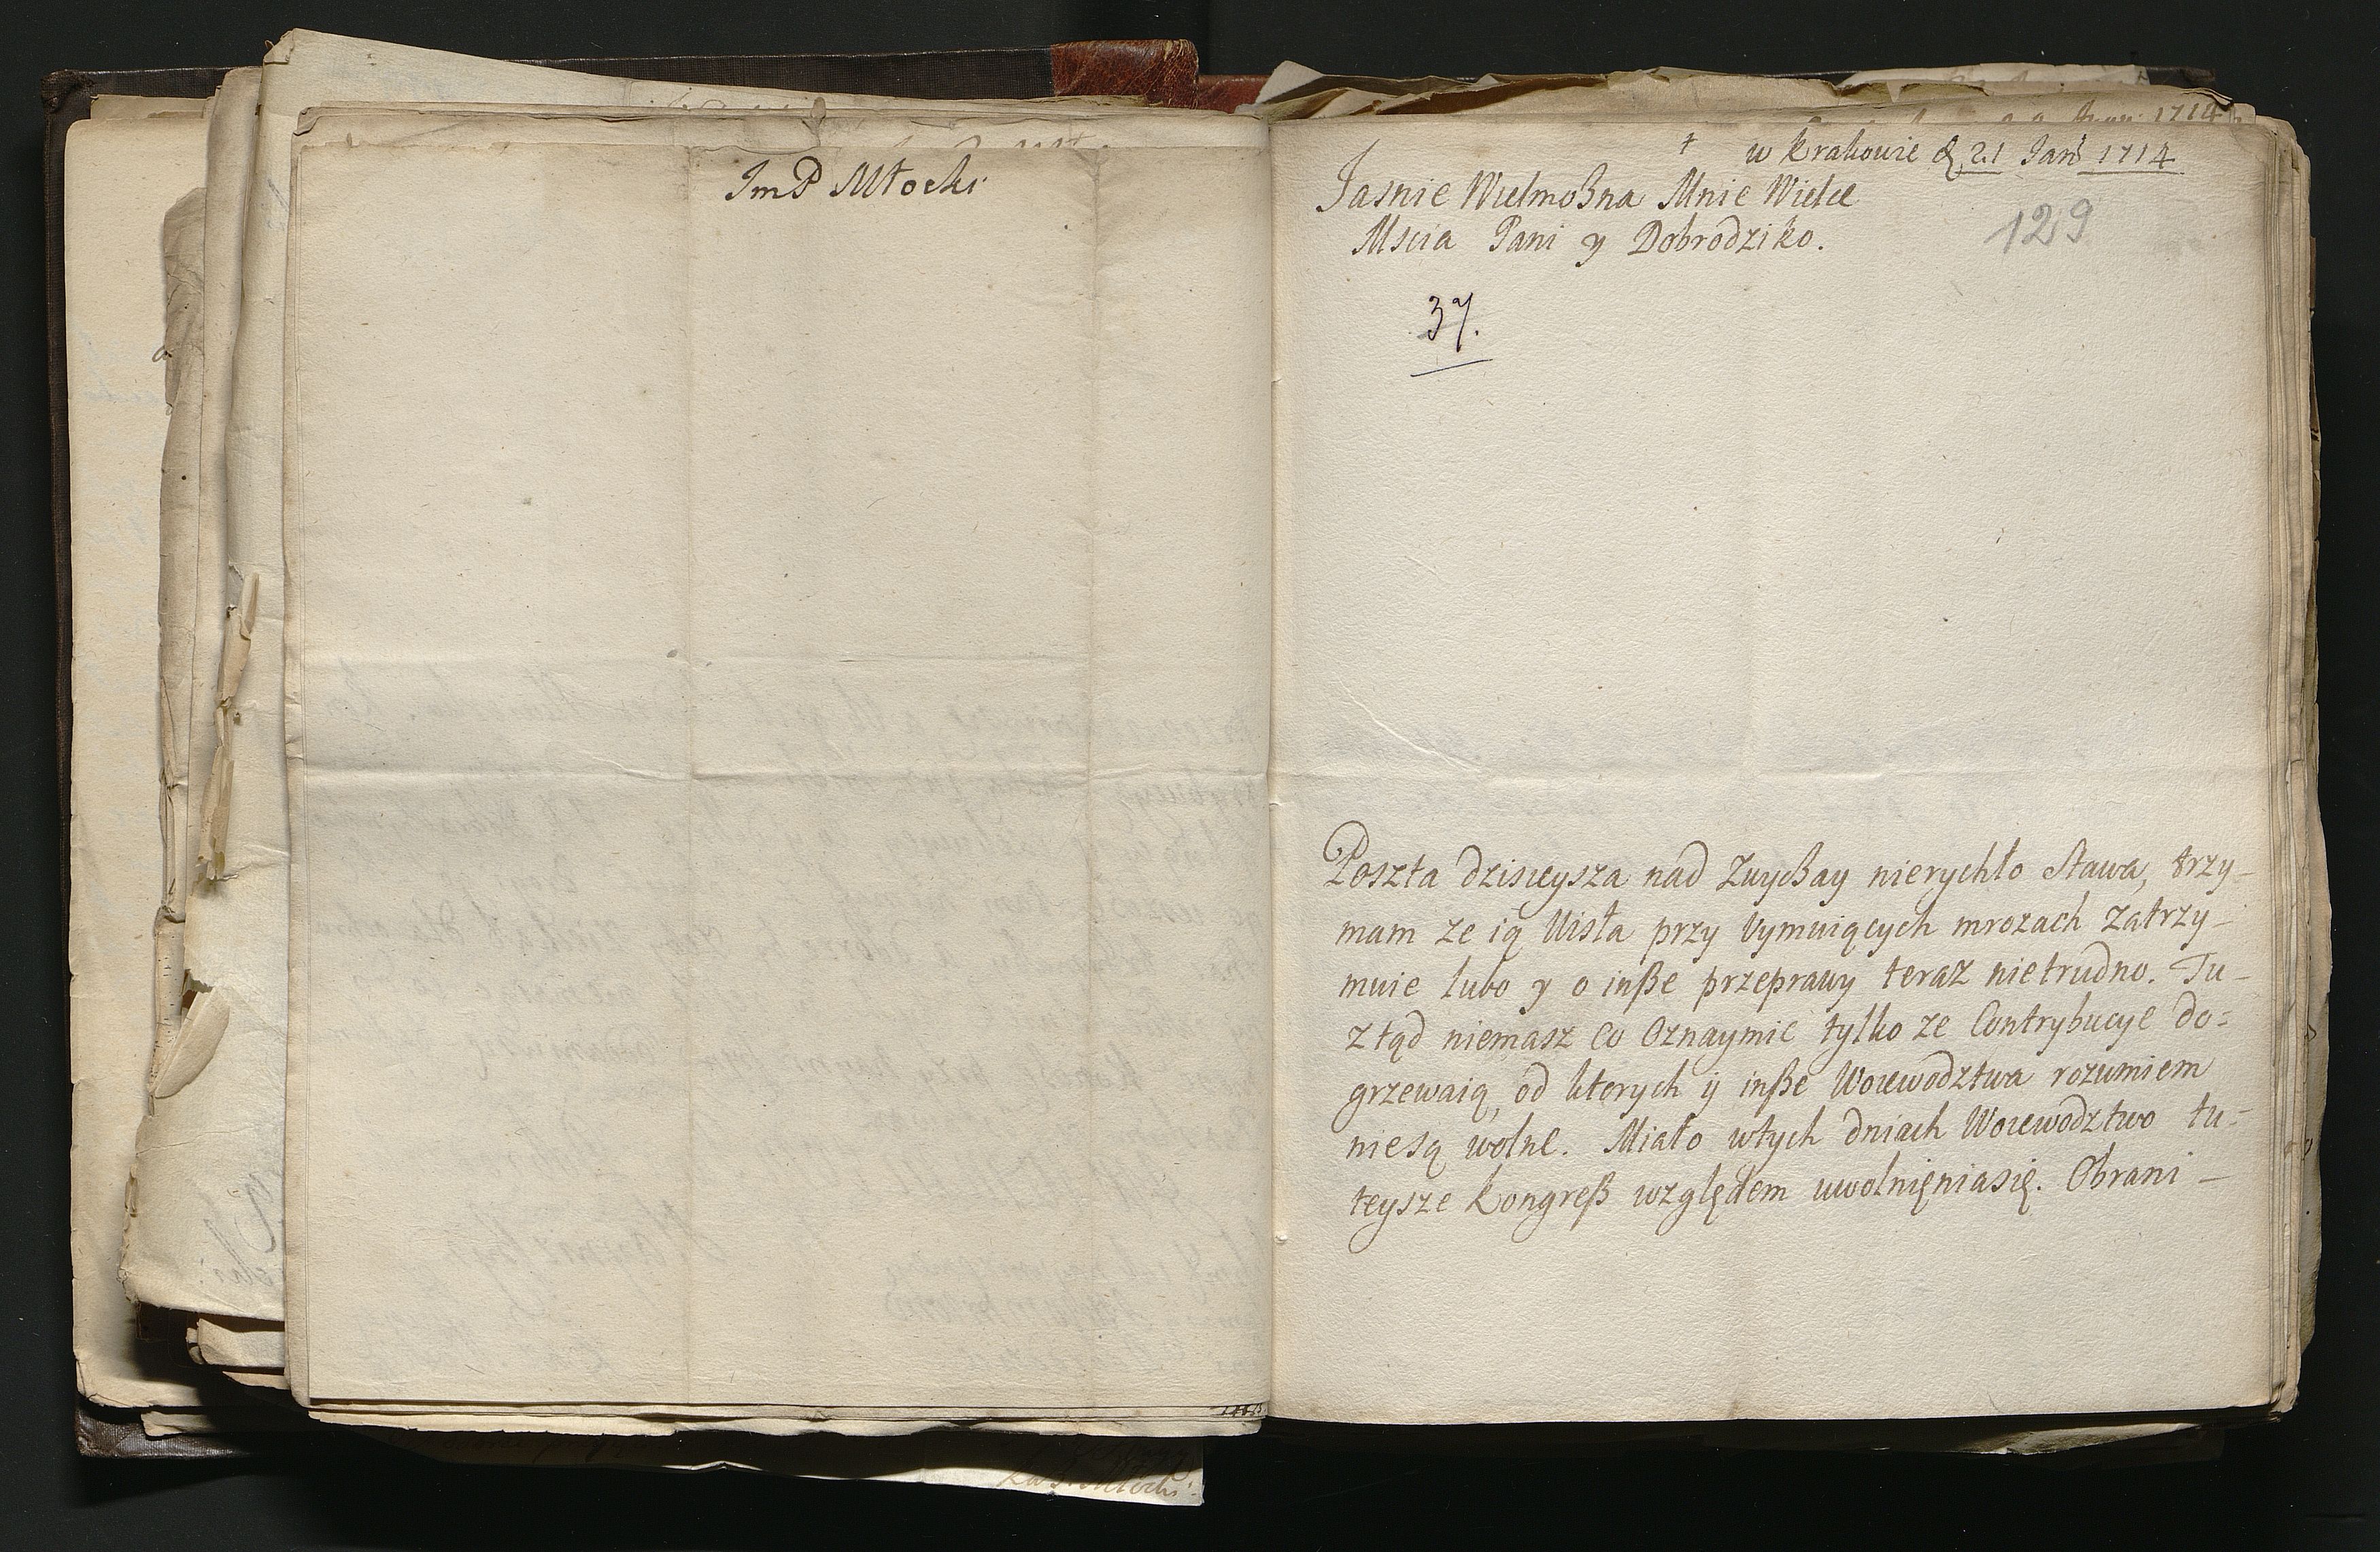 ImP Młocki
† w Krakowie d 21 Jan 1714
Jasnie Wielmoßna Mnie Wielce
Mscia Pani y Dobrodziko.
129
37.
Poszta dzisieysza nad Zwyczay nierychło stawa, trzy-
mam ze ią Wisła przy Uymuiących mrozach Zatrzy-
muie lubo y o inße przeprawy teraz nietrudno. Tu-
ztąd niemasz co Oznaymic tylko ze Contrybucye do=
grzewaią, od ktorych ij inße Woiewodztwa rozumiem
niesą wolne. Miało wtych dniach Woiewodztwo tu=
teysze Kongreß względem uwolnięniasię. Obrani –